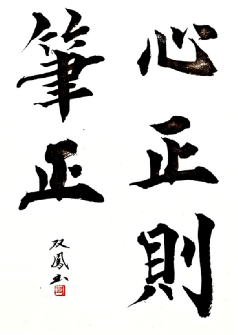 心正則
筆正
双鳳书